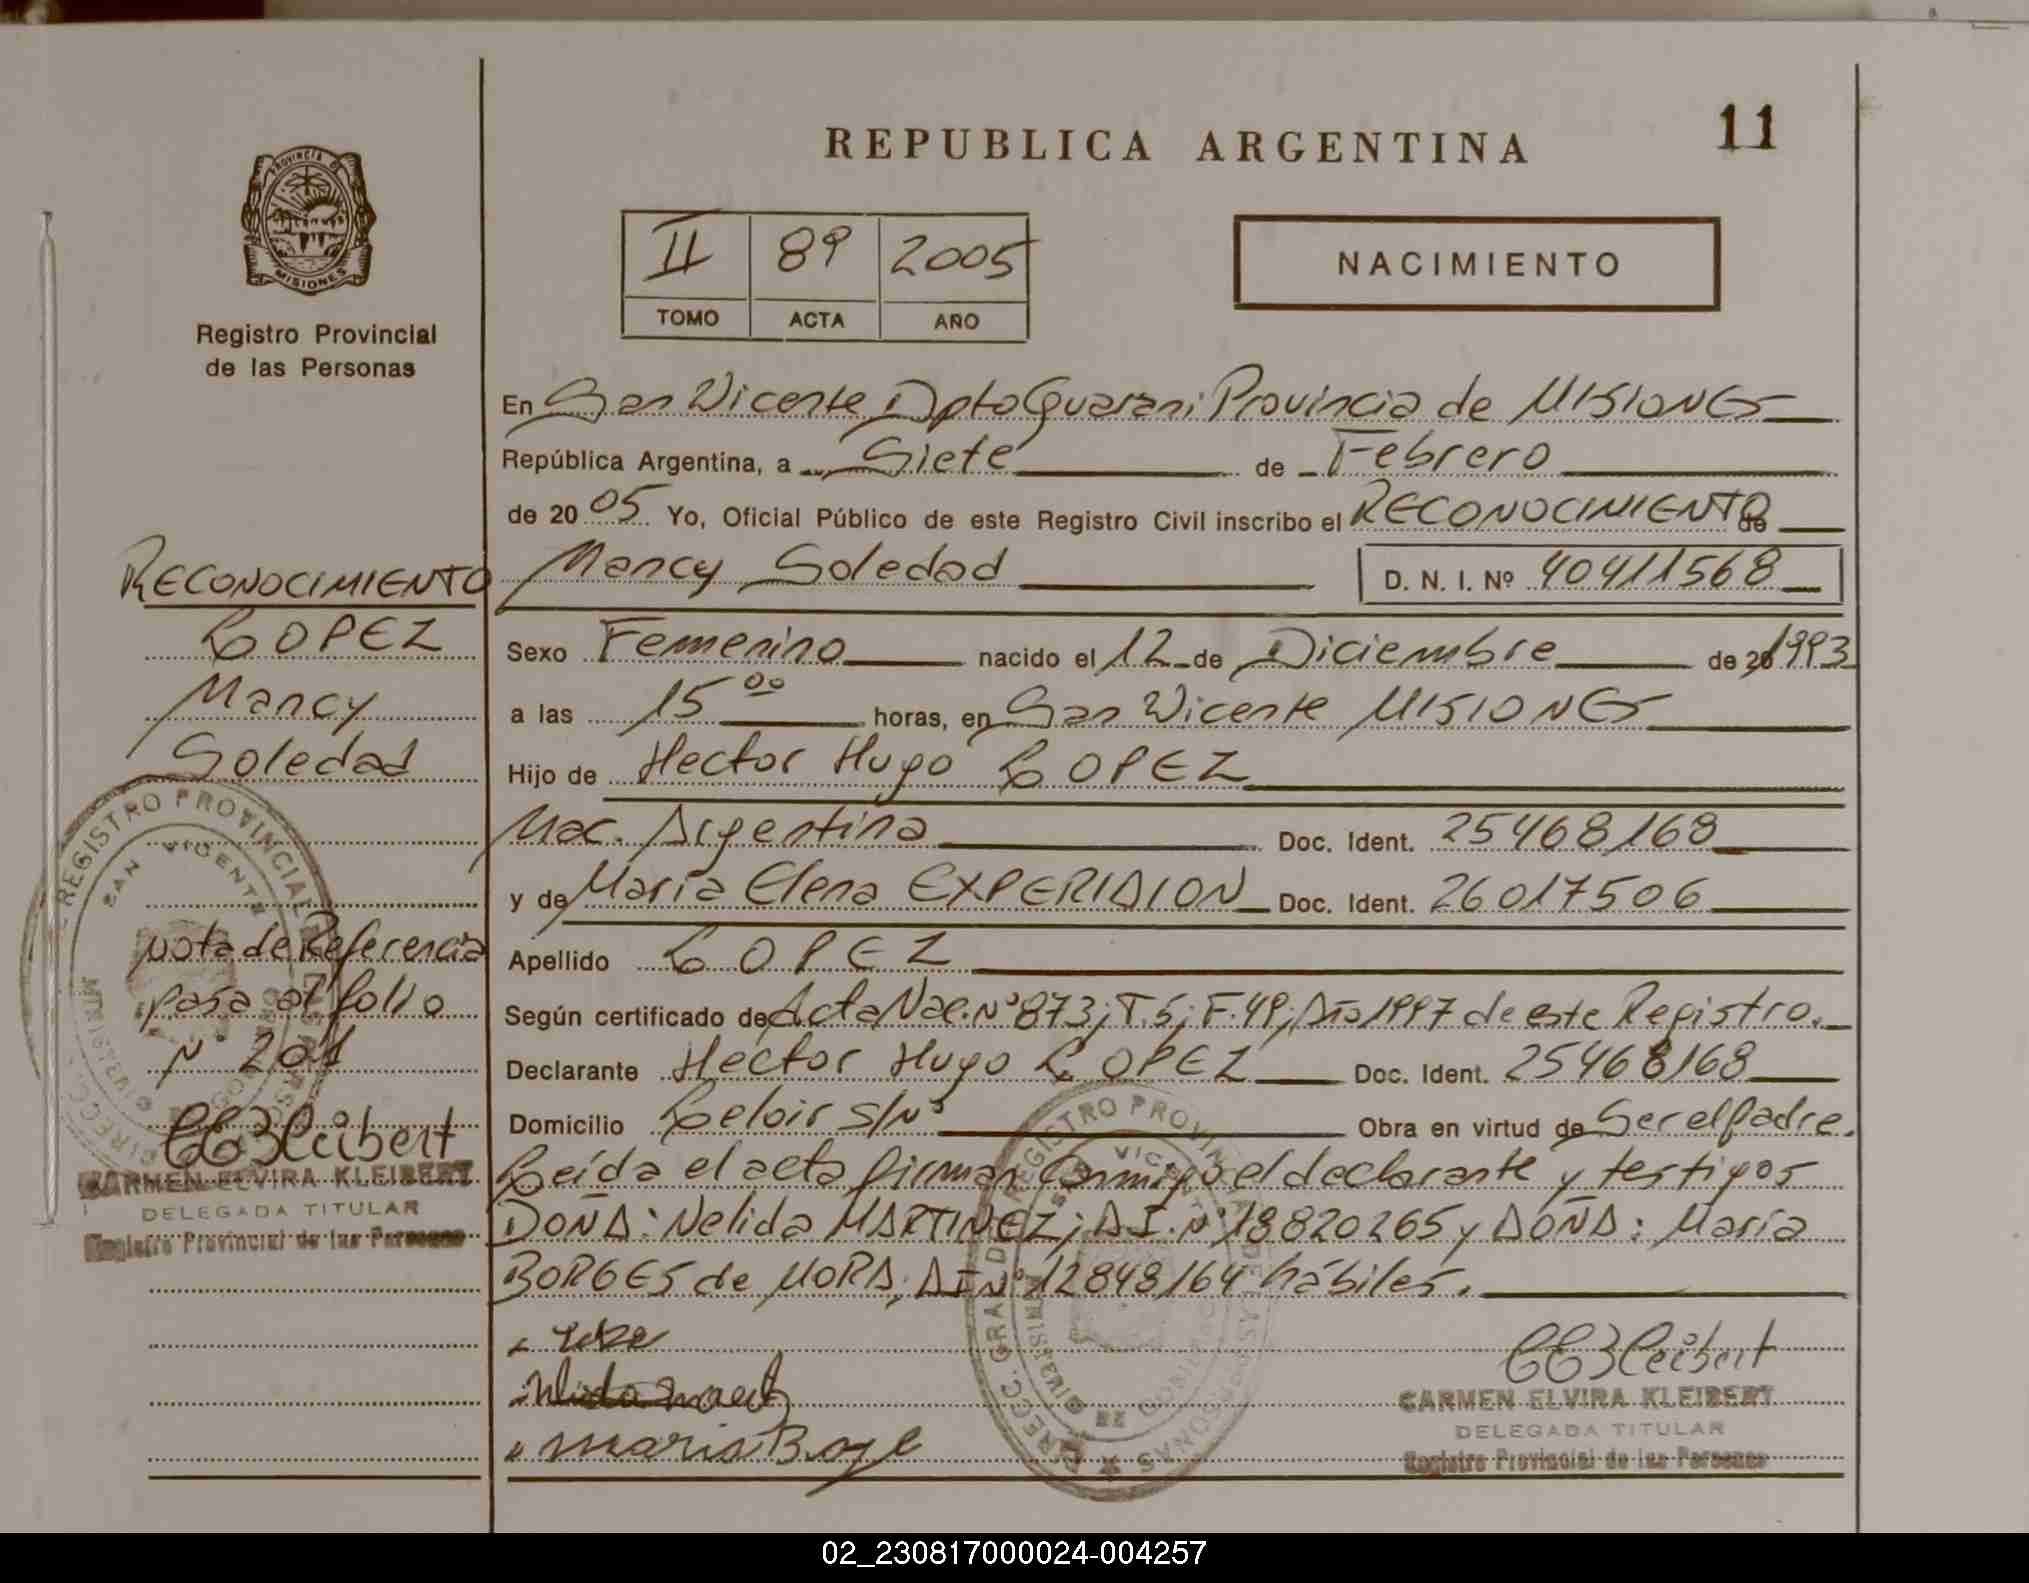 11
REPUBLICA ARGENTINA
PROVINCIA DE
MISIONES
Registro Provincial
de las Personas
II 89 2005
TOMO ACTA AÑO
NACIMIENTO
En San Vicente Dpto Guarani Provincia de MISIONES
República Argentina, a Siete de Febrero
de 2005 Yo, Oficial Público de este Registro Civil inscribo el RECONOCIMIENTO de
Nancy Soledad D. N. I. Nº 40411568
Sexo Femenino nacido el 12 de Diciembre de 1993
a las 15 00 horas, en San Vicente MISIONES
Hijo de Hector Hugo LOPEZ
Nac. Argentina Doc. Ident. 25468168
y de Maria Elena EXPERIDION Doc. Ident. 26017506
Apellido LOPEZ
Según certificado de Acta Nac. Nº 873; T.5; F.49; Año 1997 de este Registro.
Declarante Hector Hugo LOPEZ Doc. Ident. 25468168
Domicilio Leloir S/Nº Obra en virtud de Ser el Padre.
Leída el acta firman conmigo el declarante y testigos
DOÑA: Nelida MARTINEZ; D.I. Nº 18820265 y DOÑA: Maria
BORGES de MORA; DI Nº 12848164 hábiles.
CARMEN ELVIRA KLEIBERT
DELEGADA TITULAR
Registro Provincial de las Personas
RECONOCIMIENTO
LOPEZ
Nancy
Soledad
nota de Referencia
pasa al folio
Nº 201
CARMEN ELVIRA KLEIBERT
DELEGADA TITULAR
Registro Provincial de las Personas
REGISTRO PROVINCIAL
SAN VICENTE
02_230817000024-004257